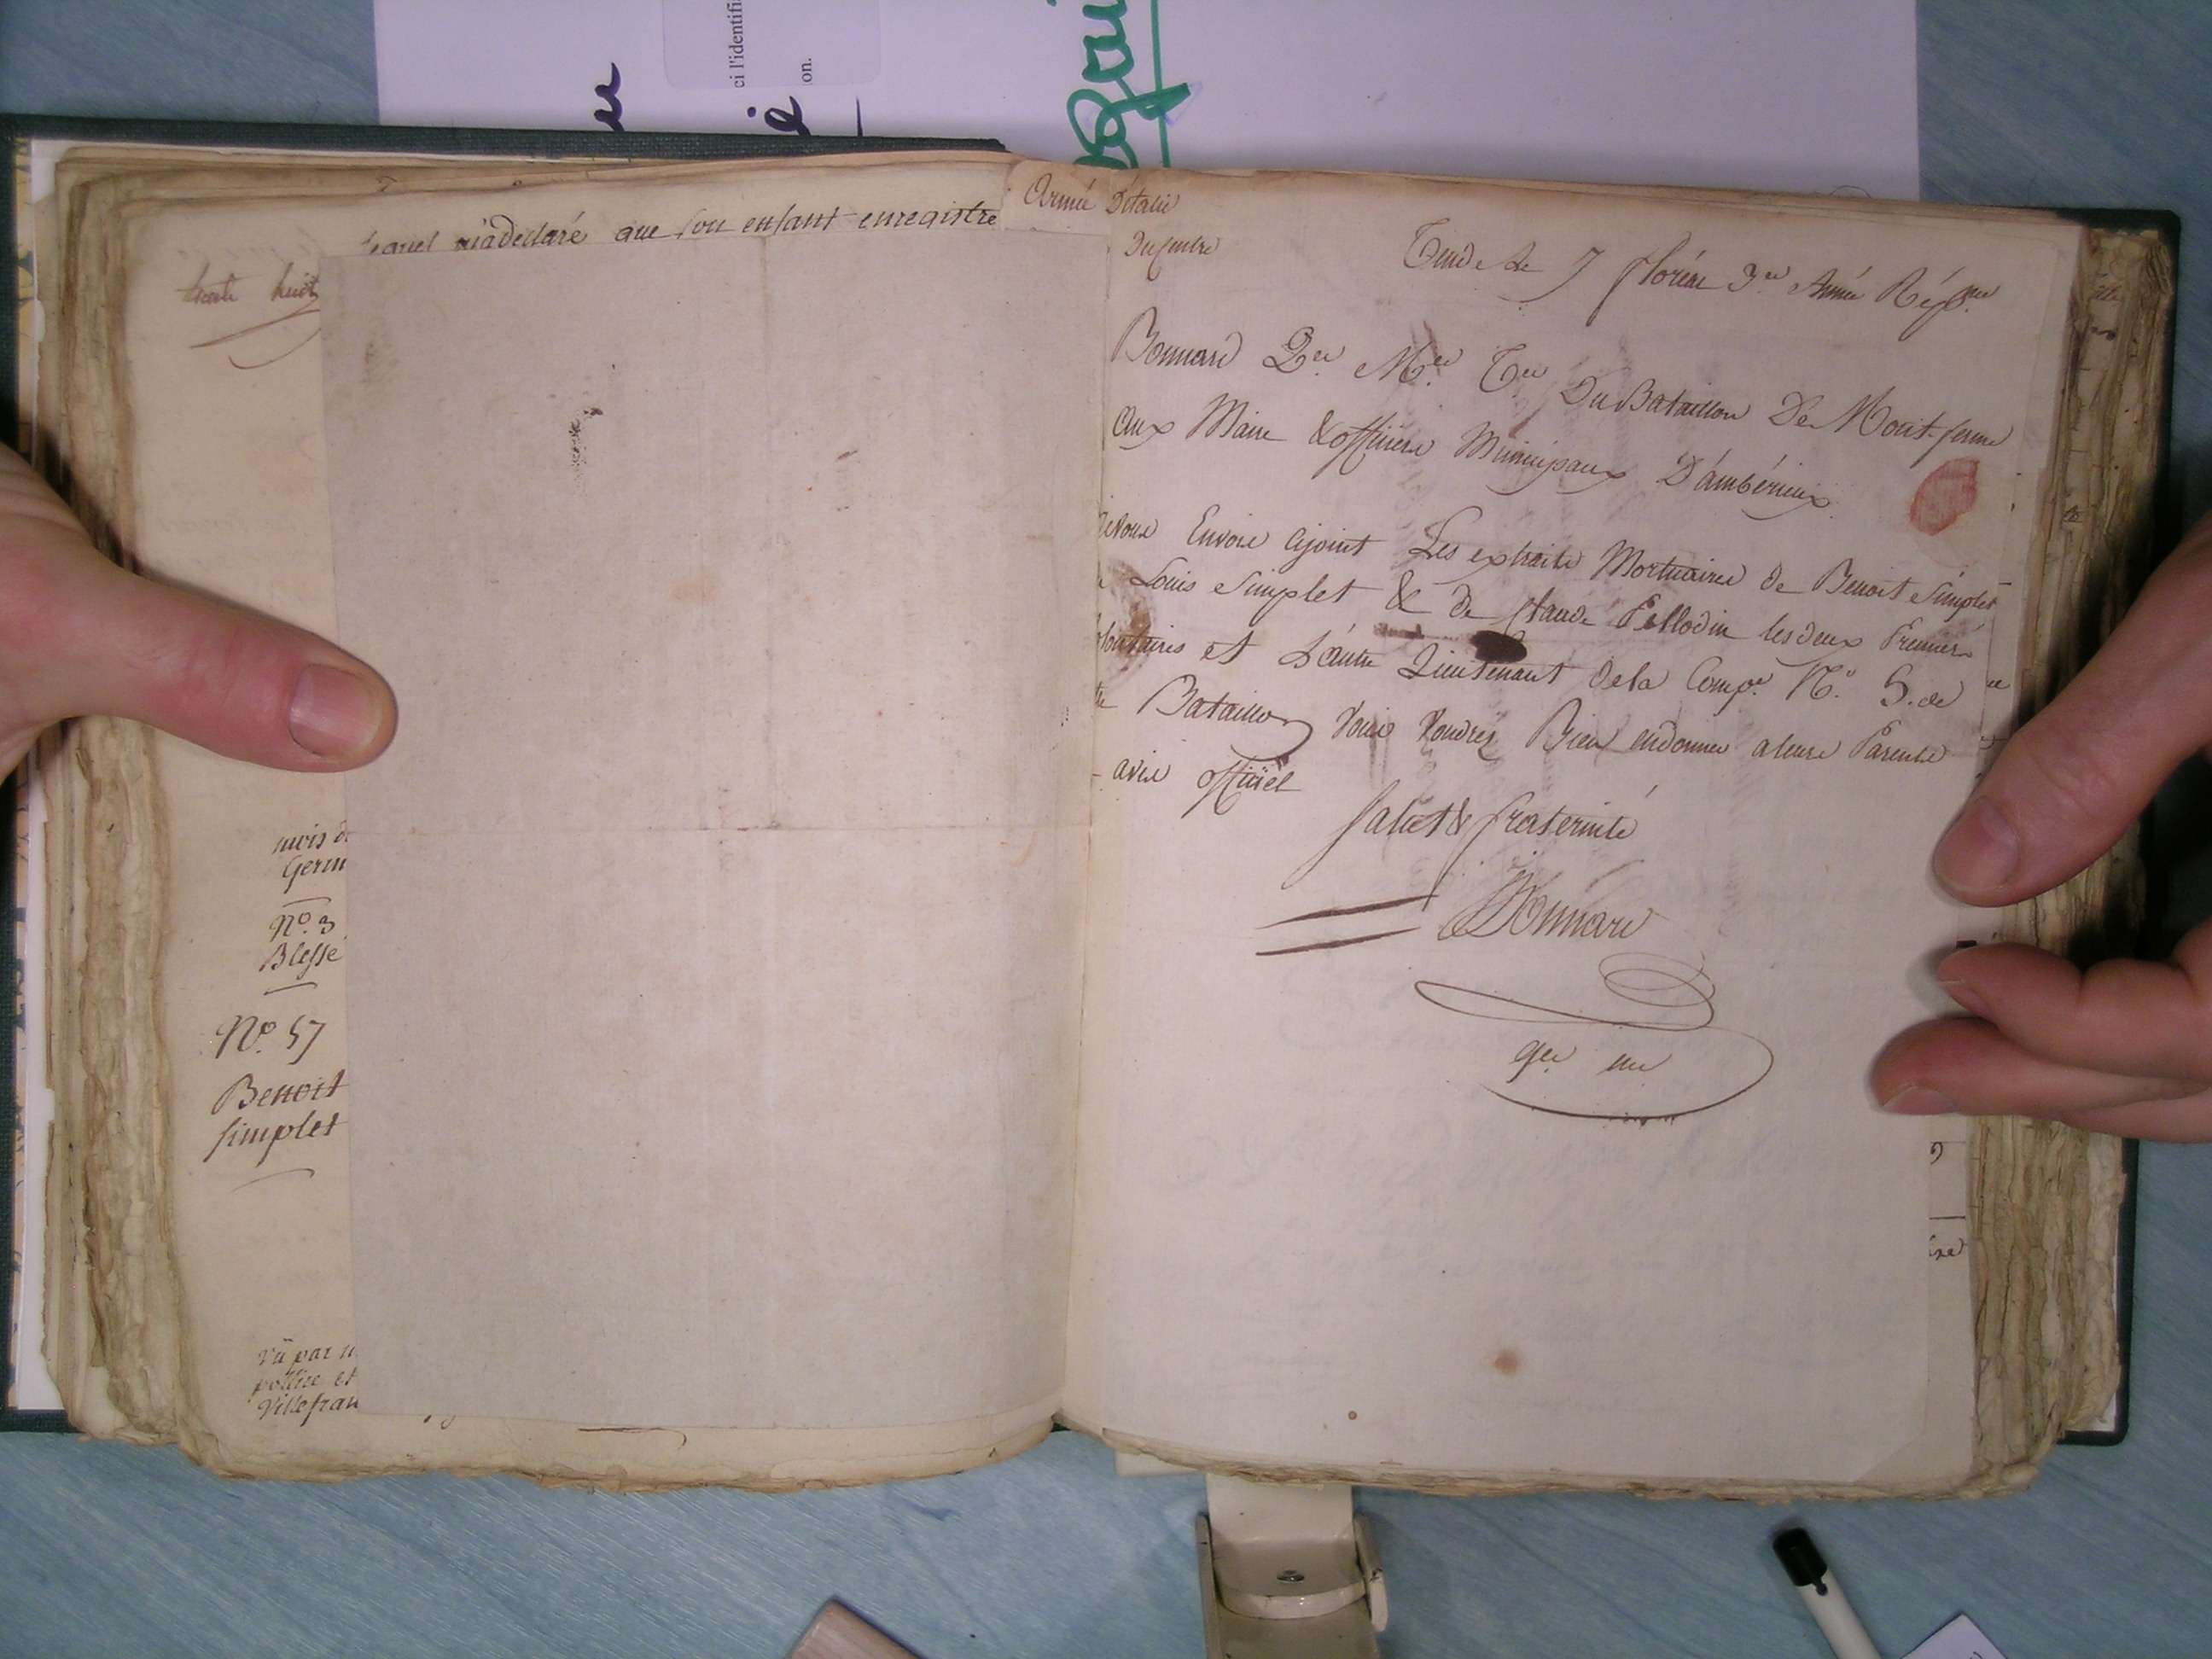 ci l'identifi
on.
lequel m'a declaré que son enfant enregistre
trente huit
mois de
Germ
N.º 3
Blessé
N.º 57
Benoit
simplet
vû par n
pollice et
Villefran
Armée D'italie
Du Centre
Tende Le 7 floréal 3.e Année Rép.ne
Bonnard Q.er M.e T.er Du Bataillon De Mont-ferme
Aux Maire & officiers Municipaux D'ambérieux
Je vous Envoie cijoint Les extraits Mortuaires de Benoit Simplet
Louis Simplet & de Claude Pellodin les deux Premiers
volontaires et L'autre Lieutenant de la Comp.e N.º 5. de
Bataillon Vous Voudrez Bien en donner a leurs Parents
avis officiel
Salut & fraternité
Bonnard